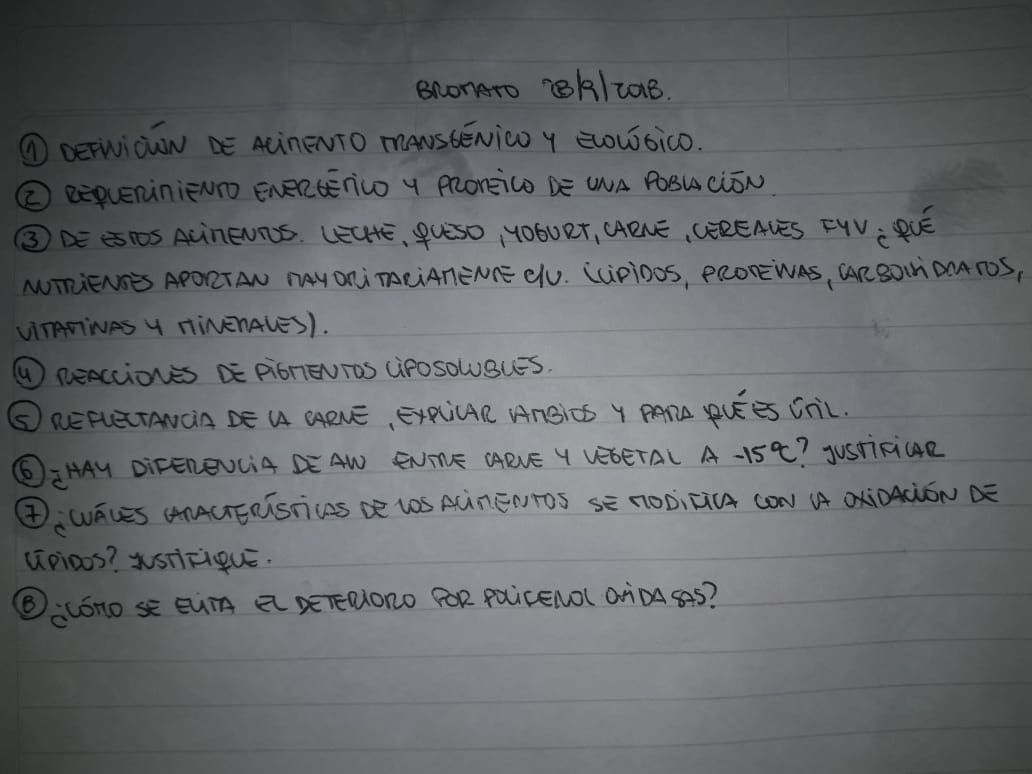 BROMATO 28/9/2018.
① DEFINICIÓN DE ALIMENTO TRANSGÉNICO Y ECOLÓGICO.
② REQUERIMIENTO ENERGÉTICO Y PROTEICO DE UNA POBLACIÓN.
③ DE ESTOS ALIMENTOS. LECHE, QUESO, YOGURT, CARNE, CEREALES FYV ¿QUÉ
NUTRIENTES APORTAN MAYORITARIAMENTE C/U. (LÍPIDOS, PROTEINAS, CARBOHIDRATOS,
VITAMINAS Y MINERALES).
④ REACCIONES DE PIGMENTOS LIPOSOLUBLES.
⑤ REFLECTANCIA DE LA CARNE, EXPLICAR CAMBIOS Y PARA QUÉ ES ÚTIL.
⑥ ¿HAY DIFERENCIA DE AW ENTRE CARNE Y VEGETAL A -15°C? JUSTIFICAR
⑦ ¿CUÁLES CARACTERÍSTICAS DE LOS ALIMENTOS SE MODIFICA CON LA OXIDACIÓN DE
LÍPIDOS? JUSTIFIQUE.
⑧ ¿CÓMO SE EVITA EL DETERIORO POR POLIFENOL OXIDASAS?